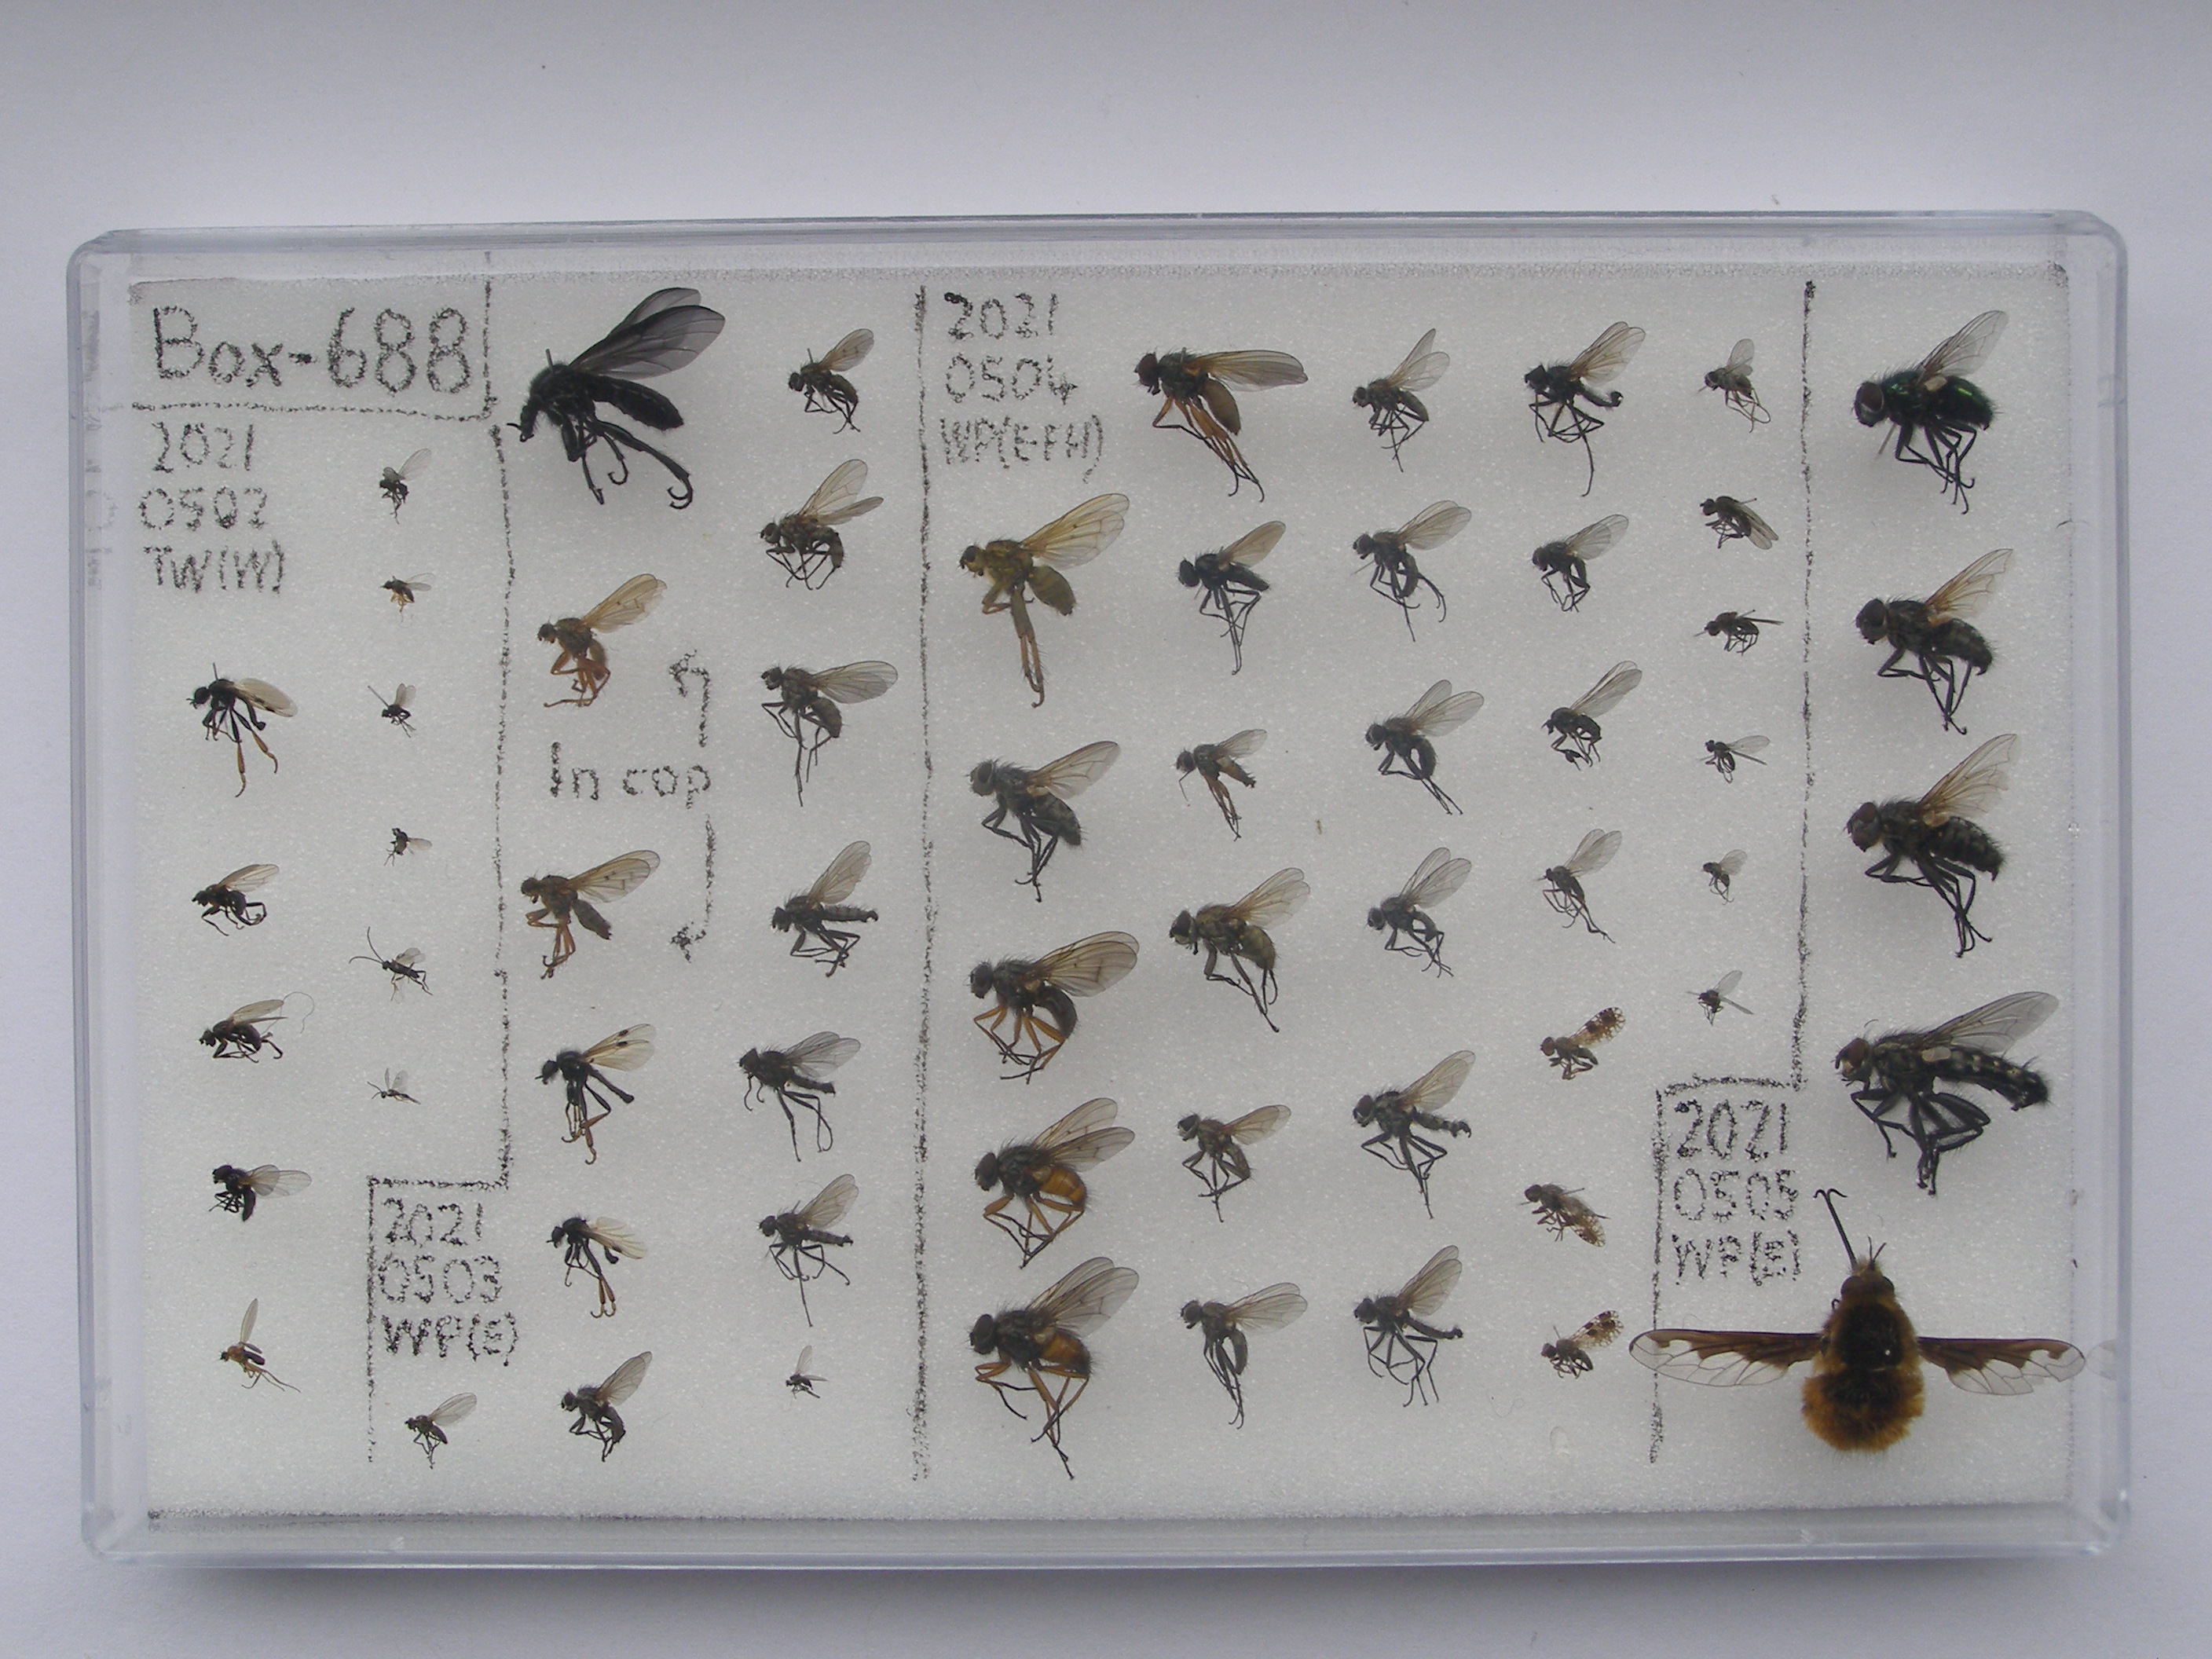 Box-688
2021
0502
TW(W)
2021
0503
WP(E)
In cop
2021
0504
WP(E-FH)
2021
0505
WP(E)